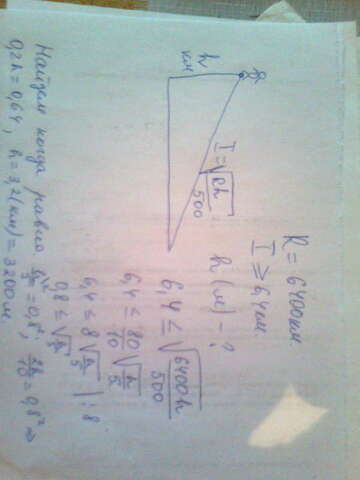 R = 6400 км
I ≥ 6,4 км
h
км
I = √(Rh/500)
h (м) - ?
6,4 ≤ √(6400h/500)
6,4 ≤ 80/10 √(h/5)
6,4 ≤ 8√(h/5) | : 8
0,8 ≤ √(h/5)
Найдем когда равно
0,2h = 0,64, h = 3,2 (км) = 3200 м